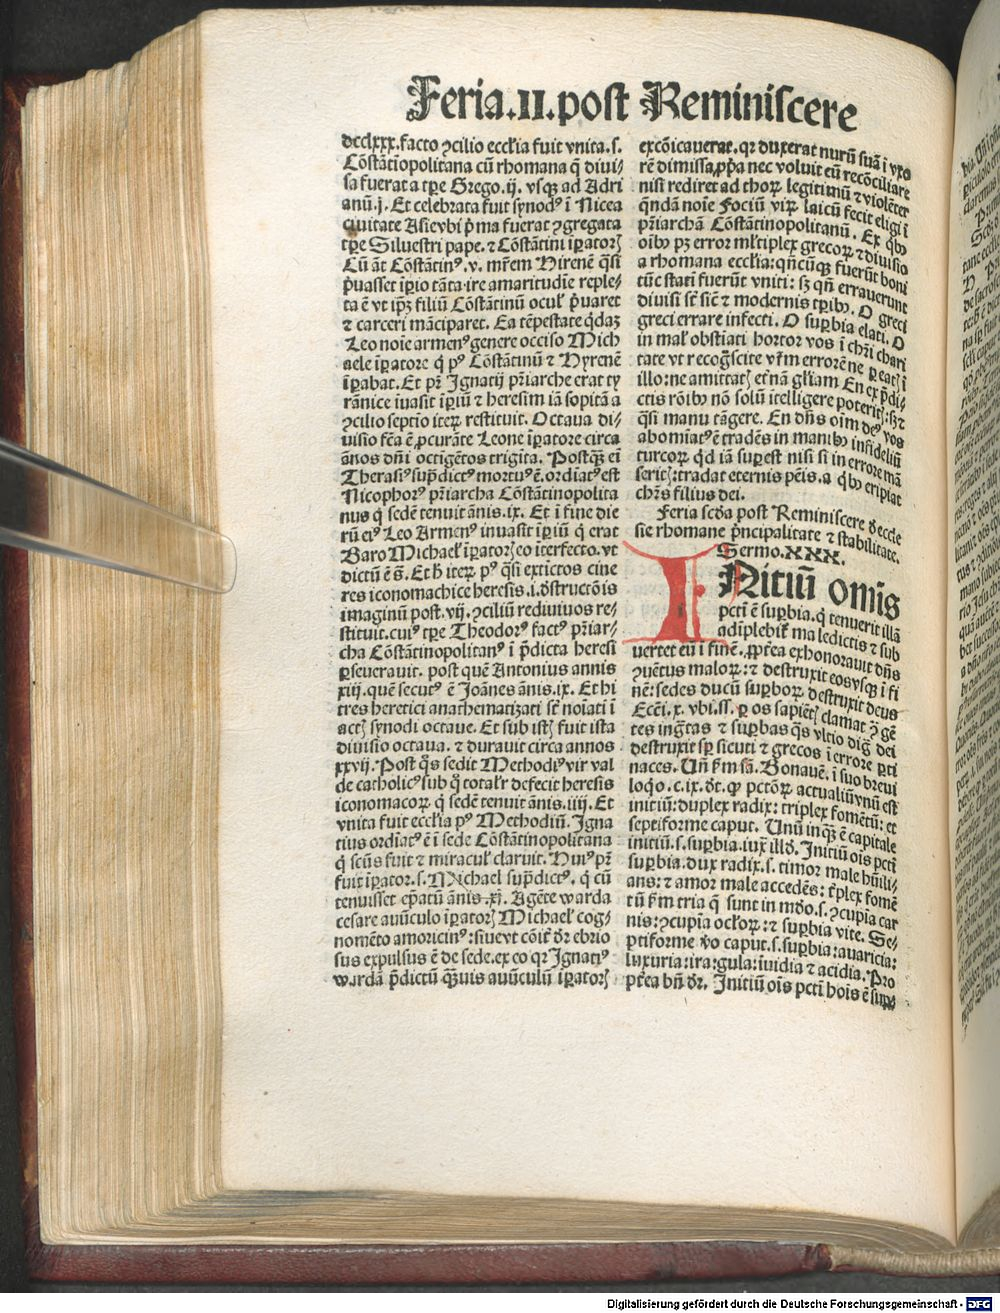 Feria.II.post Reminiscere
dcclxxx.facto ꝯcilio eccłia fuit vnita.s.
Cōstātīopolitana cū rhomana q̄ diui⸗
sa fuerat a tꝑe Grego.ij. vsqꝫ ad Adri
anū.j. Et celebrata fuit synodꝰ ī Nicea
ciuitate Asie vbi p̄ma fuerat ꝯgregata
tꝑe Siluestri pape. ⁊ Cōstātini īꝑatorꝭ
Cū āt Cōstātinꝰ.v. mr̄em Hirenē q̄si
p̄uasset īꝑio tāta ire amaritudīe reple⸗
ta ē vt ip̄ꝫ filiū Cōstātinū ocuł p̄uaret
⁊ carceri mācīparet. Ea tēpestate q̄daꝫ
Leo noīe armenꝰ genere occiso Mich
aele īꝑatore q̄ pꝰ Cōstātinū ⁊ Hyrenē
īꝑabat. Et pr̄ Ignatij pr̄iarche erat ty
rānice īuasit īꝑiū ⁊ heresim iā sopitā a
ꝯcilio septīo iteꝝ restituit. Octaua di⸗
uisio fc̄a ē ꝓcurāte Leone īꝑatore circa
ānos dn̄i octigētos trigīta. Postq̄ꝫ eī
Therasiꝰ sup̄dictꝰ mortuꝰ ē. ordīatꝰ est
Nicophorꝰ pr̄iarcha Cōstātīnopolita
nus q̄ sedē tenuit ānis.ix. Et ī fine die
rū eiꝰ Leo Armenꝰ inuasit īꝑiū q̄ erat
Baro Michaeł īꝑatorꝭ eo īterfecto. vt
dictū ē s̄. Et h̄ iteꝝ pꝰ q̄si extīctos cine
res iconomachice heresis.i. dstructōis
imaginū post.vij.ꝯciliū rediuiuos re⸗
stituit. cuiꝰ tꝑe Theodorꝰ factꝰ pr̄iar⸗
cha Cōstātīnopolitanꝰ ī p̄dicta heresi
ꝑseuerauit. post quē Antonius annis
xiij. quē secutꝰ ē Joānes ānis.ix. Et hi
tres heretici anathematizati sr̄ noīati ī
actꝭ synodi octaue. Et sub istꝭ fuit ista
diuisio octaua. ⁊ durauit circa annos
xxvij. Post q̄s sedit Methodiꝰ vir val
de catholicꝰ sub q̄ totalr̄ defecit heresis
iconomacoꝝ q̄ sedē tenuit ānis.iiij. Et
vnita fuit eccłia pꝰ Methodiū. Igna
tius ordīatꝰ ē ī sede Cōstātīnopolitana
q̄ scūs fuit ⁊ miracuł claruit. Huiꝰ pr̄
fuit īꝑator.s. Michael sup̄dictꝰ. q̄ cū
tenuisset ep̄atū ānis.xj. Agēte warda
cesare auūculo īꝑatorꝭ Michaeł cog⸗
nomēto amoricinꝰ: siue vt cōiꝶ dr̄ ebrio
sus expulsus ē de sede. ex eo qꝛ Ignatiꝰ
wardā p̄dictū q̄ꝫuis auūculū īꝑatorꝭ
excōicauerat. qꝛ duxerat nurū suā ī vxo
rē dimissa ꝓp̄a nec voluit eū recōciliare
nisi rediret ad thoꝝ legitimū ⁊ violēter
q̄ndā noīe Fociū viꝝ laicū fecit eligi ī
pr̄iarchā Cōstātinopolitanū. Ex q̄bꝰ
oībꝰ pꝫ error młtiplex grecoꝝ ⁊ diuisio
a rhomana eccłia: qn̄cūqꝫ fuerūt boni
tūc stati fuerūt vniti: sꝫ qn̄ errauerunt
diuisi sr̄ sic̄ ⁊ modernis tꝑibꝰ. O greci
greci errare infecti. O suꝑbia elati. O
in mał obstīati hortor vos ī chr̄i chari
tate vt recog̃scite vr̄m errorē ne ꝑeatꝭ ī
illo: ne amittatꝭ etn̄ā głiam En ex p̄di⸗
ctis rōibꝰ nō solū ītelligere poteritꝭ: sꝫ ⁊
q̄si manu tāgere. En dn̄s oīm deꝰ vos
abomīatꝰ ē tradēs in manibꝰ infideliū
turcoꝝ qd̄ iā suꝑest nisi si in errore mā
seritꝭ: tradat eternis peīs. a q̄bꝰ eripiat
chr̄s filius dei.
Feria scd̄a post Reminiscere ⅾ eccle
sie rhomane p̄ncipalitate ⁊ stabilitate.
Sermo.XXX.
INitiū omīs
pctī ē suꝑbia. q̄ tenuerit illā
adīplebiꝶ maledictis ⁊ sub
uertet eū ī finē. ꝓpt̄ea exhonorauit dn̄s
ꝯuētus maloꝝ: ⁊ destruxit eos vsqꝫ ī fi
nē: sedes ducū suꝑboꝝ destruxit deus
Ecc̄i.x. vbi.ss. ꝑ os sapiētꝭ clamat ꝙ gē
tes ing̃tas ⁊ suꝑbas q̄s vltio dig̃ dei
destruxit sꝑ sicuti ⁊ grecos ī errore ꝑti
naces. Vn̄ ẜm sā. Bonauē. ī suo breui
loqo.c.ix. dt̄. ꝙ pctōꝝ actualiū vnū est
initiū: duplex radix: triplex fomētū: et
septiforme caput. Vnū inqꝫ ē capitale
initiū.s. suꝑbia. iux̄ illd̄. Initiū oīs pctī
suꝑbia. dux radix.s. timor male hūili⸗
ans: ⁊ amor male accedēs: t̄plex fomē
tū ẜm tria q̄ sunt in mdo.s. ꝯcupīa car
nis: ꝯcupīa ocłoꝝ: ⁊ suꝑbia vite. Se⸗
ptiforme v̄o caput.s. suꝑbia: auaricia:
luxuria: ira: gula: īuidia ⁊ acidia. Pro
pt̄ea bn̄ dr̄. Initiū oīs pctī hoīs ē suꝑ⸗
Digitalisierung gefördert durch die Deutsche Forschungsgemeinschaft - DFG